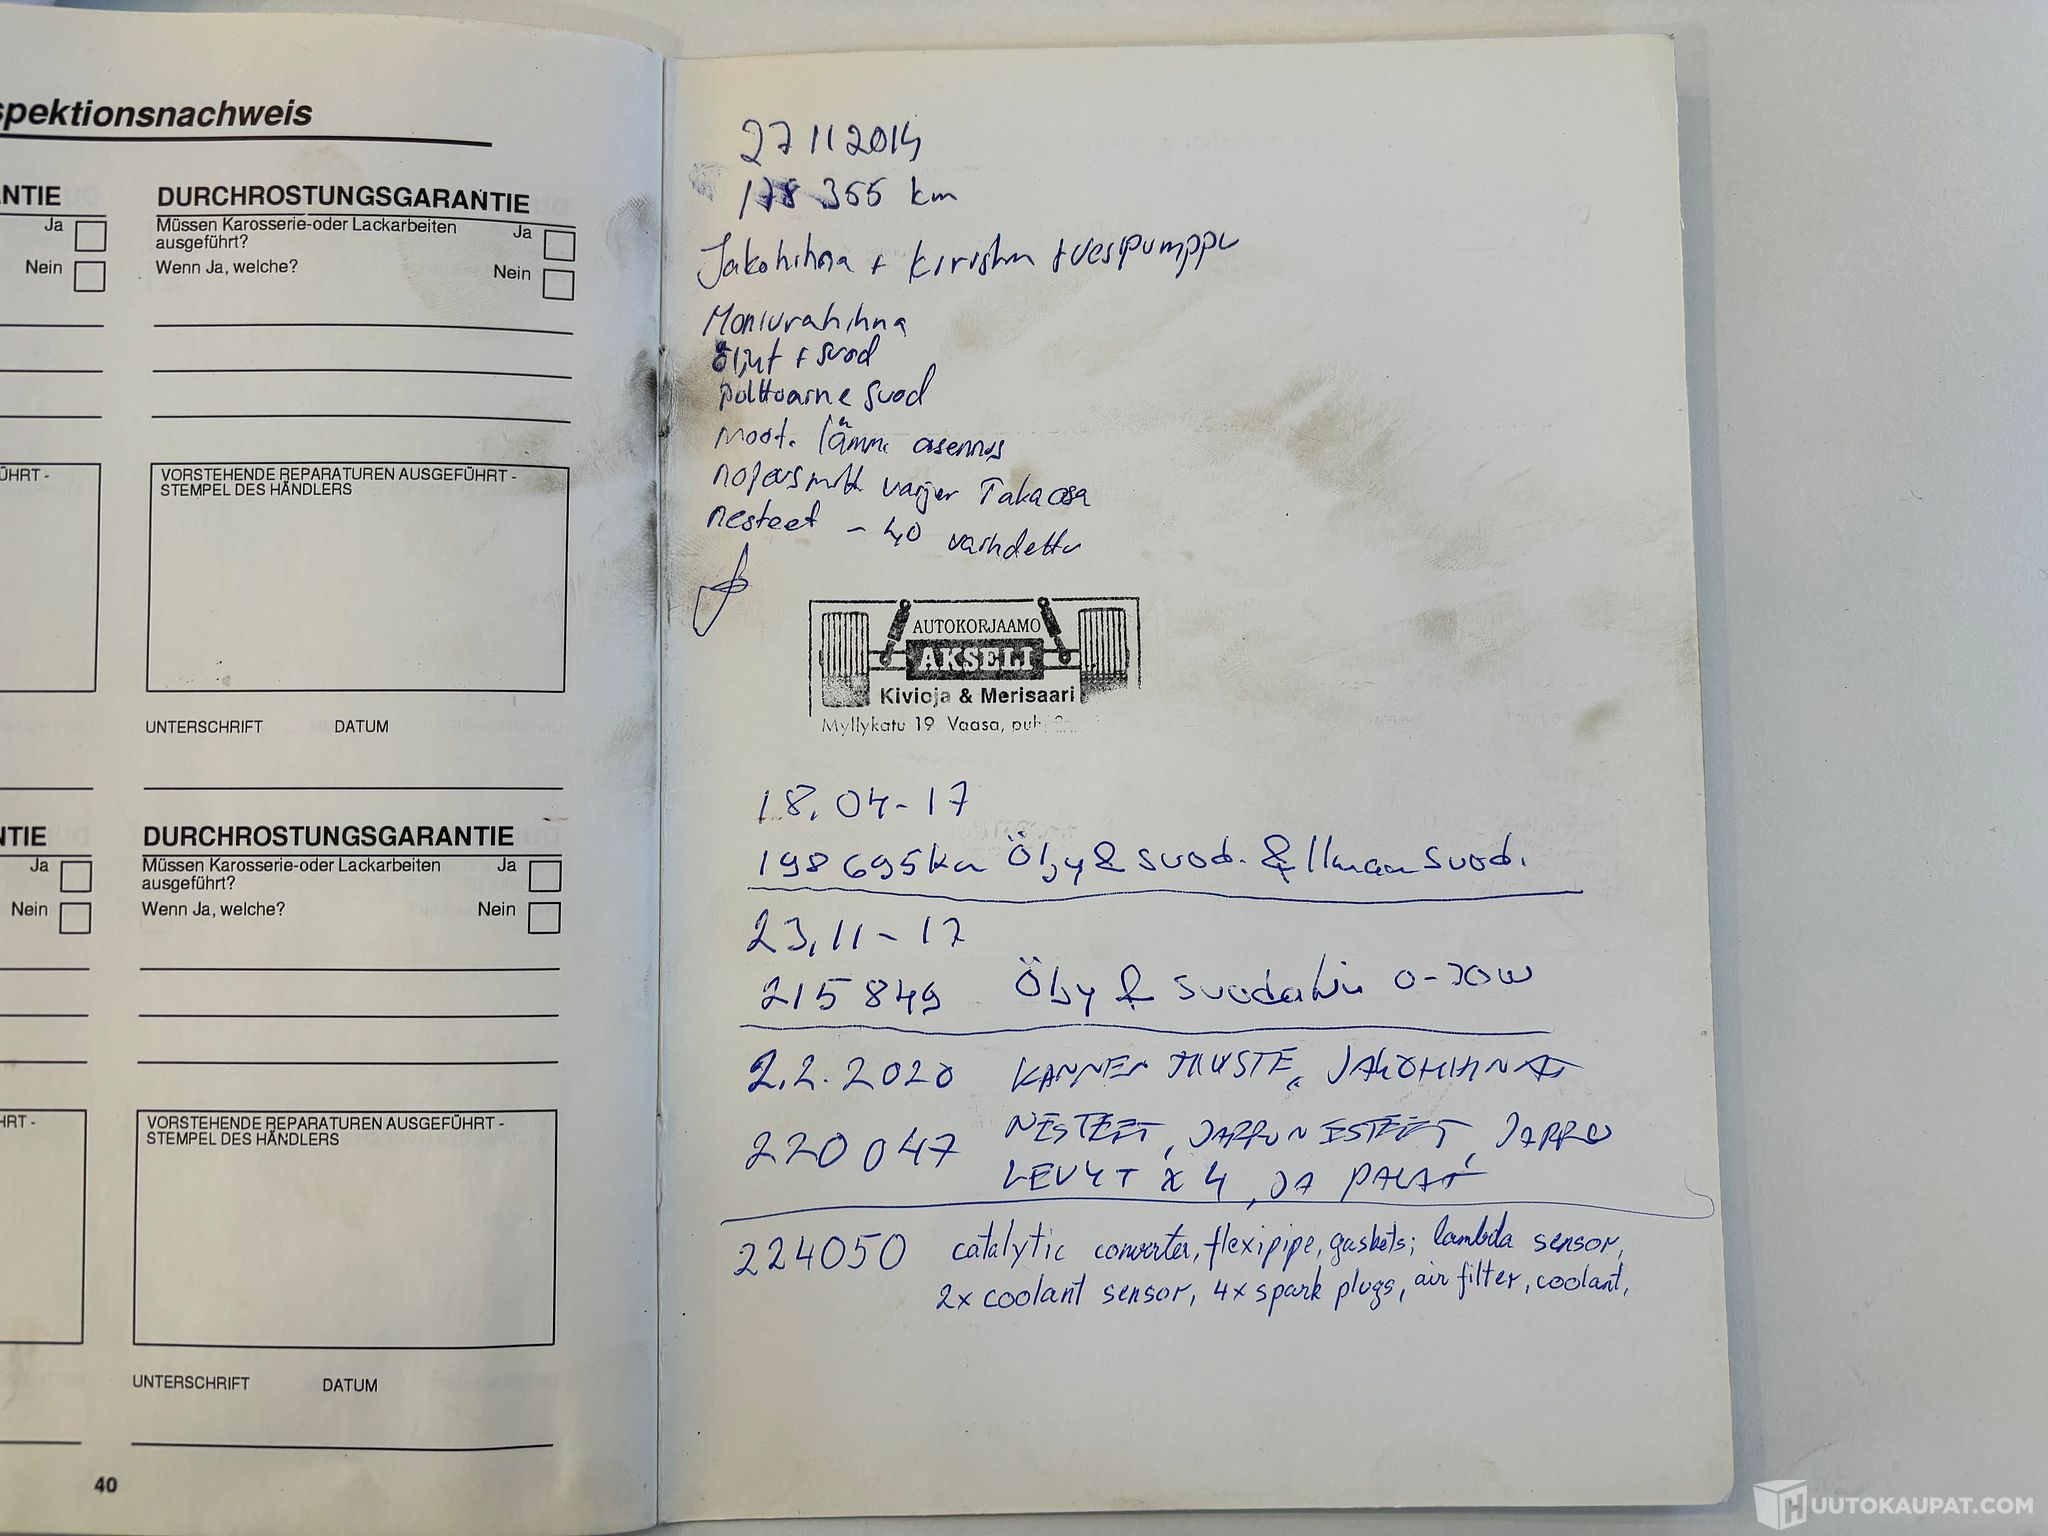 spektionsnachweis
NTIE
Ja
Nein
DURCHROSTUNGSGARANTIE
Müssen Karosserie-oder Lackarbeiten
ausgeführt?
Ja
Wenn Ja, welche?
Nein
ÜHRT -
VORSTEHENDE REPARATUREN AUSGEFÜHRT -
STEMPEL DES HÄNDLERS
UNTERSCHRIFT DATUM
NTIE
Ja
Nein
DURCHROSTUNGSGARANTIE
Müssen Karosserie-oder Lackarbeiten
ausgeführt?
Ja
Wenn Ja, welche?
Nein
HRT -
VORSTEHENDE REPARATUREN AUSGEFÜHRT -
STEMPEL DES HÄNDLERS
UNTERSCHRIFT DATUM
40
27 11 2014
178 355 km
Jakohihna + kiristin + vesipumppu
Moniurahihna
öljyt + suod
polttoaine suod
moot. lämm. asennus
Takaosa
nesteet - 40 vaihdettu
AUTOKORJAAMO
AKSELI
Kivioja & Merisaari
Myllykatu 19 Vaasa, puh.
18.04-17
198 695km Öljy & suod. & Ilmansuod.
23.11-17
215 849 Öljy & suodatin 0-30W
2.2.2020 JAKOHIHNAT
220 047 NESTEET, JARRUNESTEET, JARRU
LEVYT x 4, JA PALAT
224050 catalytic converter, flexipipe, gaskets; lambda sensor,
2x coolant sensor, 4x spark plugs, air filter, coolant,
HUUTOKAUPAT.COM